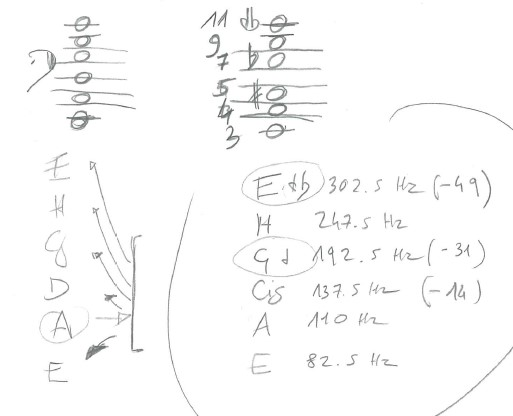 11
9
7
5
4
3
E
H
G
D
A
E
E 302.5 Hz (-49)
H 247.5 Hz
G 192.5 Hz (-31)
Cis 137.5 Hz (-14)
A 110 Hz
E 82.5 Hz